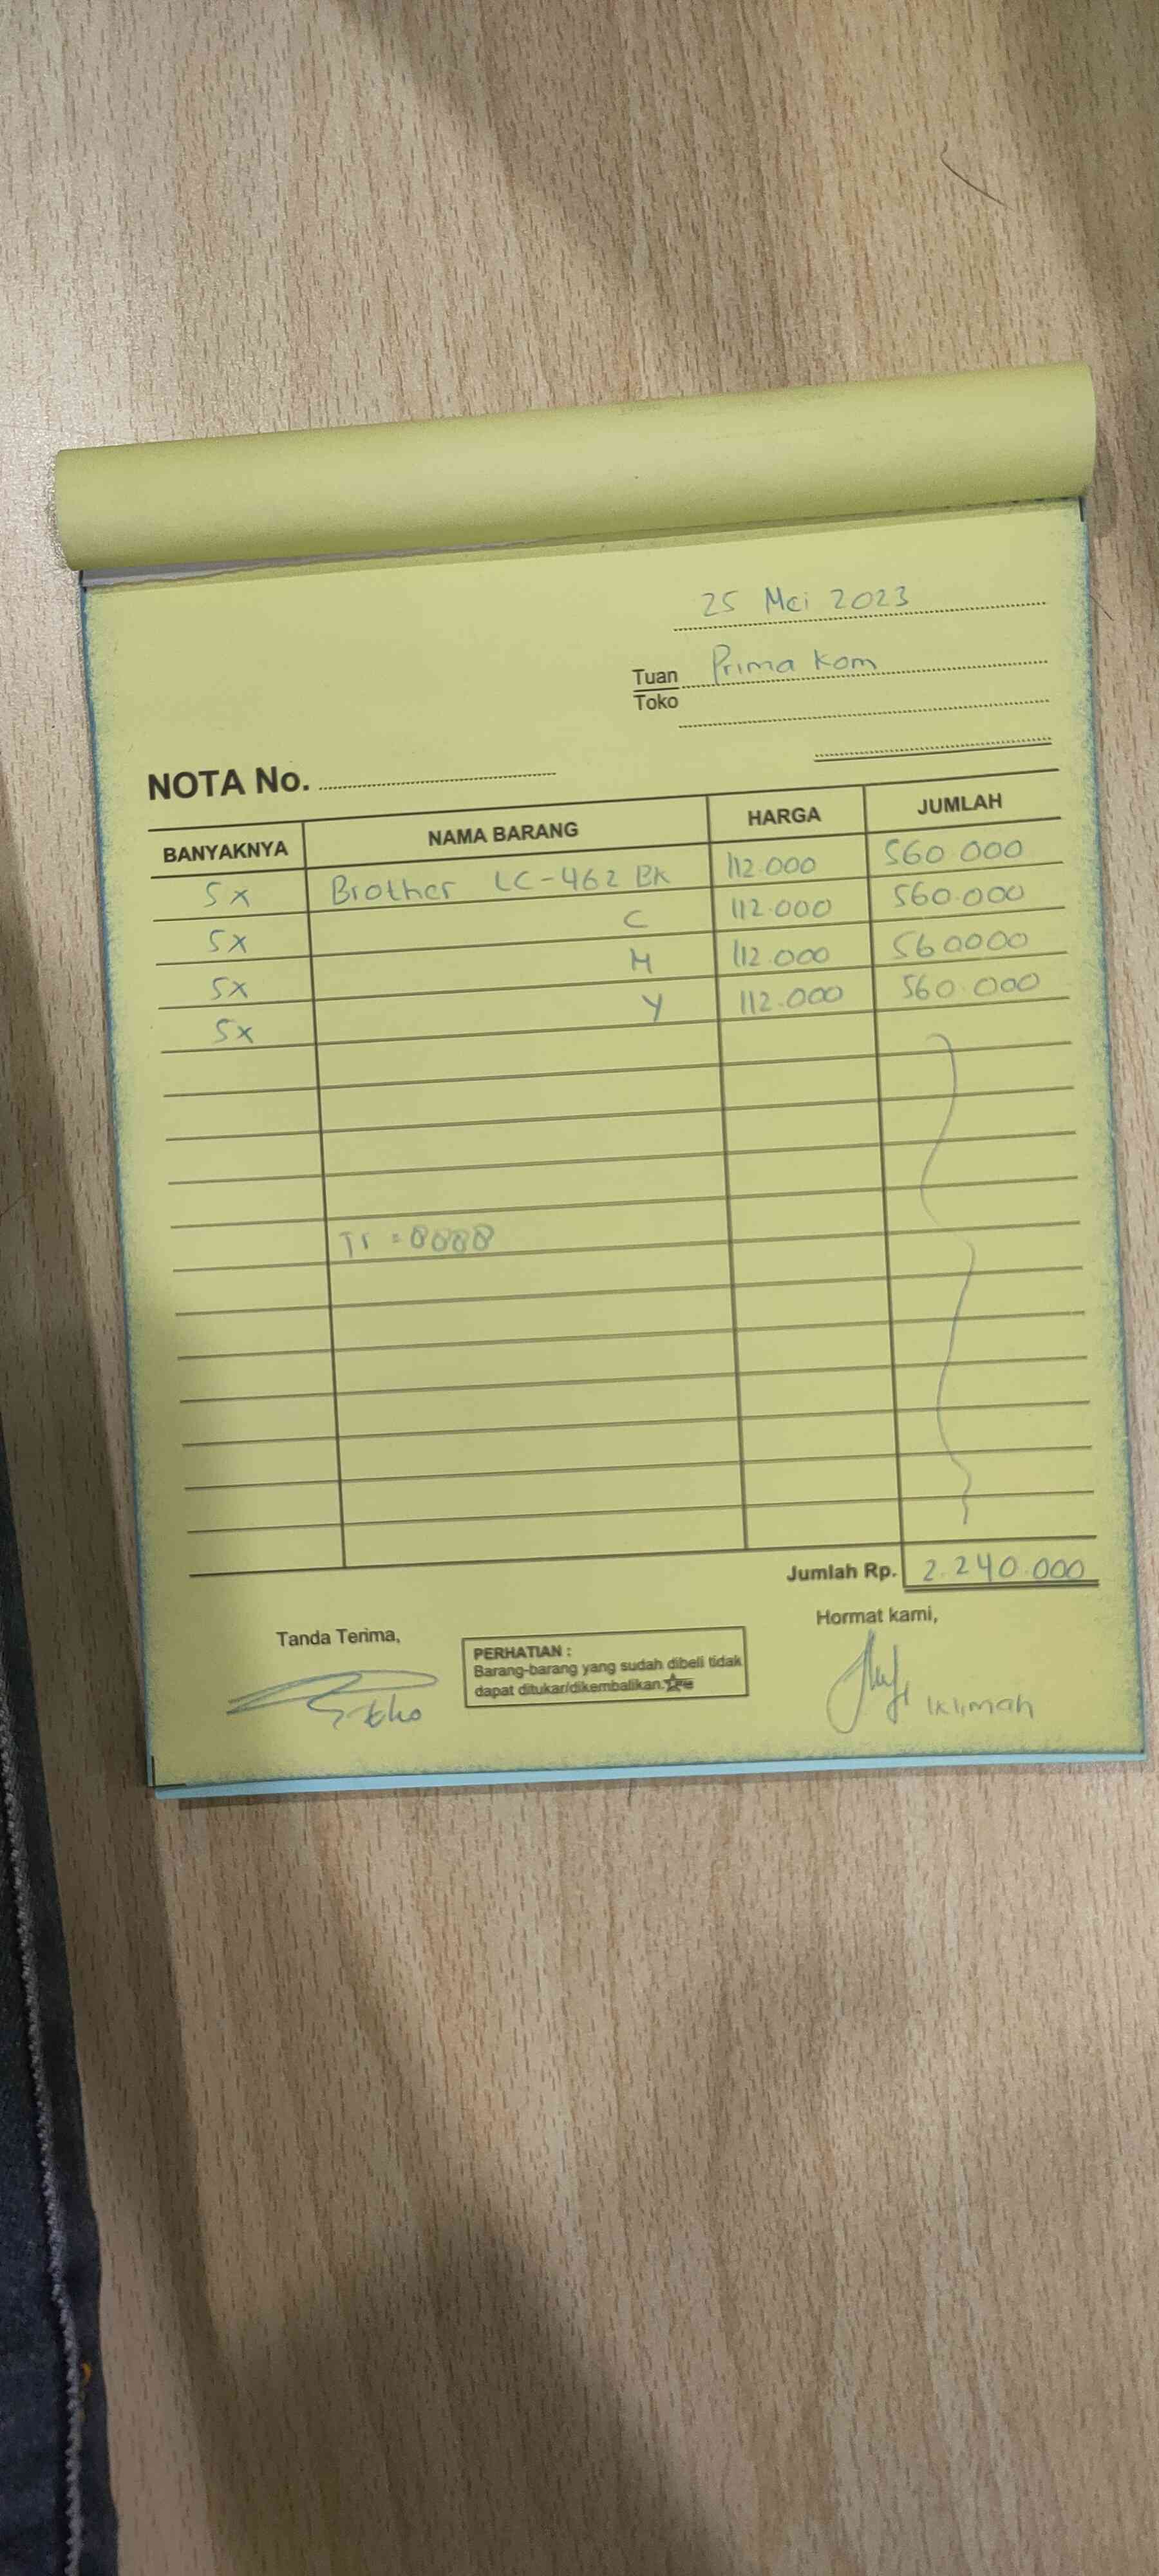 25 Mei 2023
Tuan Prima Kom
Toko
NOTA No.
BANYAKNYA NAMA BARANG HARGA JUMLAH
5x Brother LC-462 BK 112.000 560 000
5x C 112.000 560.000
5x M 112.000 560000
5x Y 112.000 560.000
Tr = 8888
Jumlah Rp. 2.240.000
Tanda Terima, Hormat kami,
PERHATIAN :
Barang-barang yang sudah dibeli tidak
dapat ditukar/dikembalikan.
Iklimah